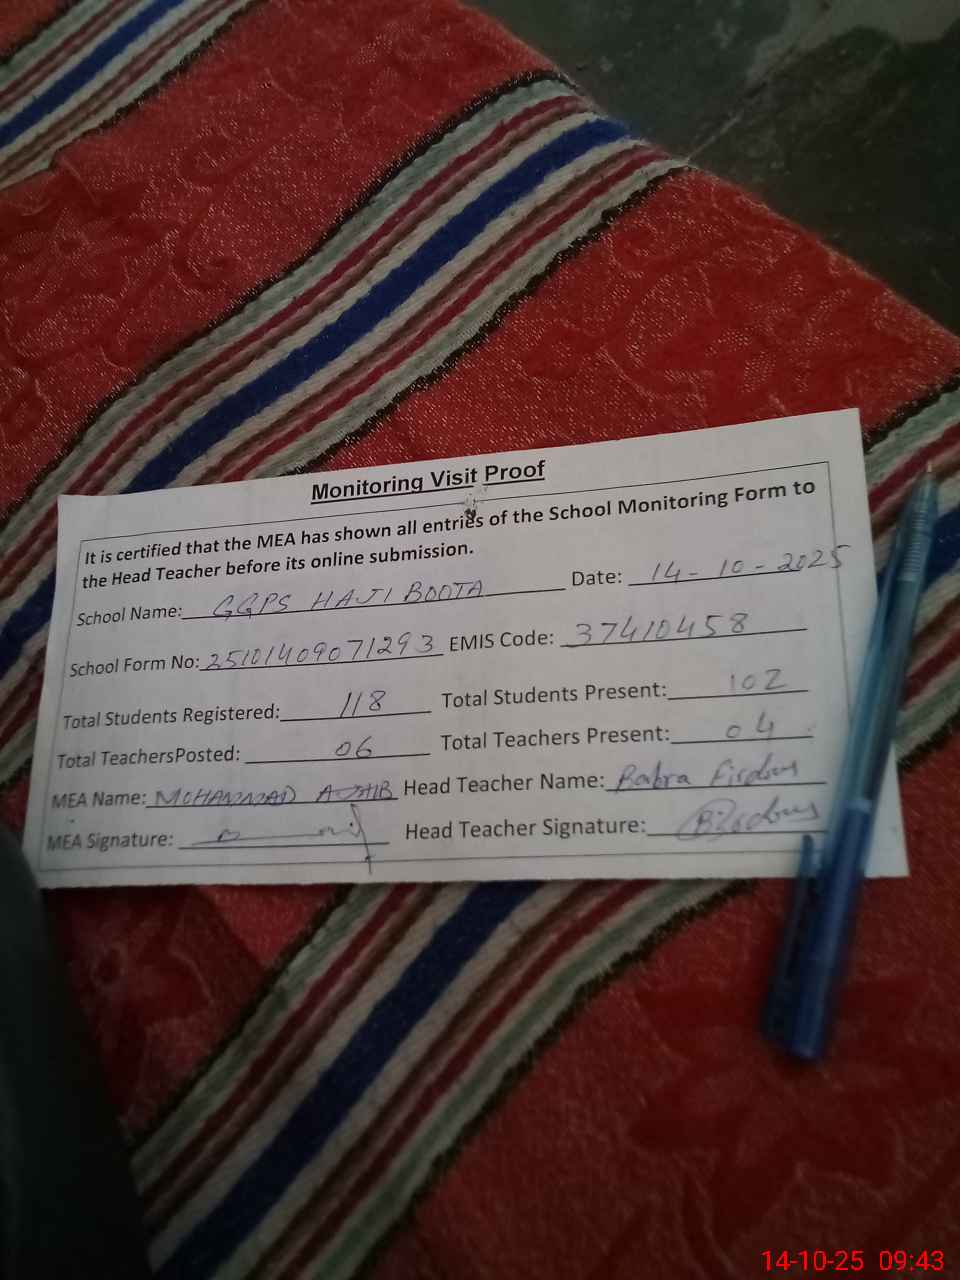 Monitoring Visit Proof
It is certified that the MEA has shown all entries of the School Monitoring Form to
the Head Teacher before its online submission.
School Name: GGPS HAJI BOOTA Date: 14-10-2025
School Form No: 25101409071293 EMIS Code: 37410458
Total Students Registered: 118 Total Students Present: 102
Total TeachersPosted: 06 Total Teachers Present: 04
MEA Name: MOHAMMAD Head Teacher Name: Babra Firdous
MEA Signature: Head Teacher Signature:
14-10-25 09:43